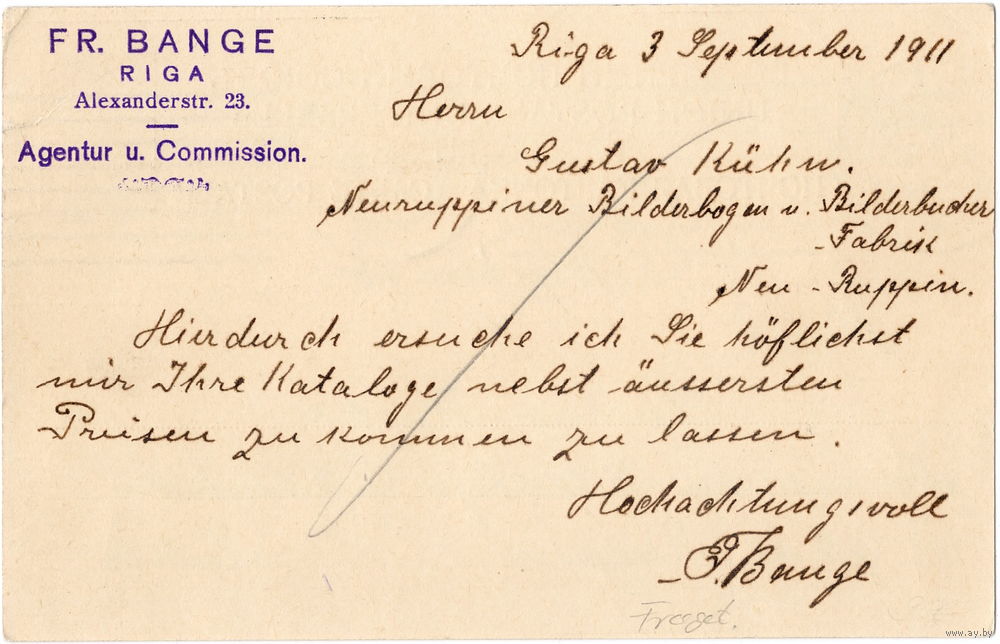 FR. BANGE
RIGA
Alexanderstr. 23.
Agentur u. Commission.
Riga 3 September 1911
Herrn
Gustav Kühn.
Neuruppiner Bilderbogen u. Bilderbucher
-Fabrik
Neu-Ruppin.
Hierdurch ersuche ich Sie höflichst
mir Ihre Kataloge nebst äussersten
Preisen zu kommen zu lassen.
Hochachtungsvoll
F. Bange
www.ay.by